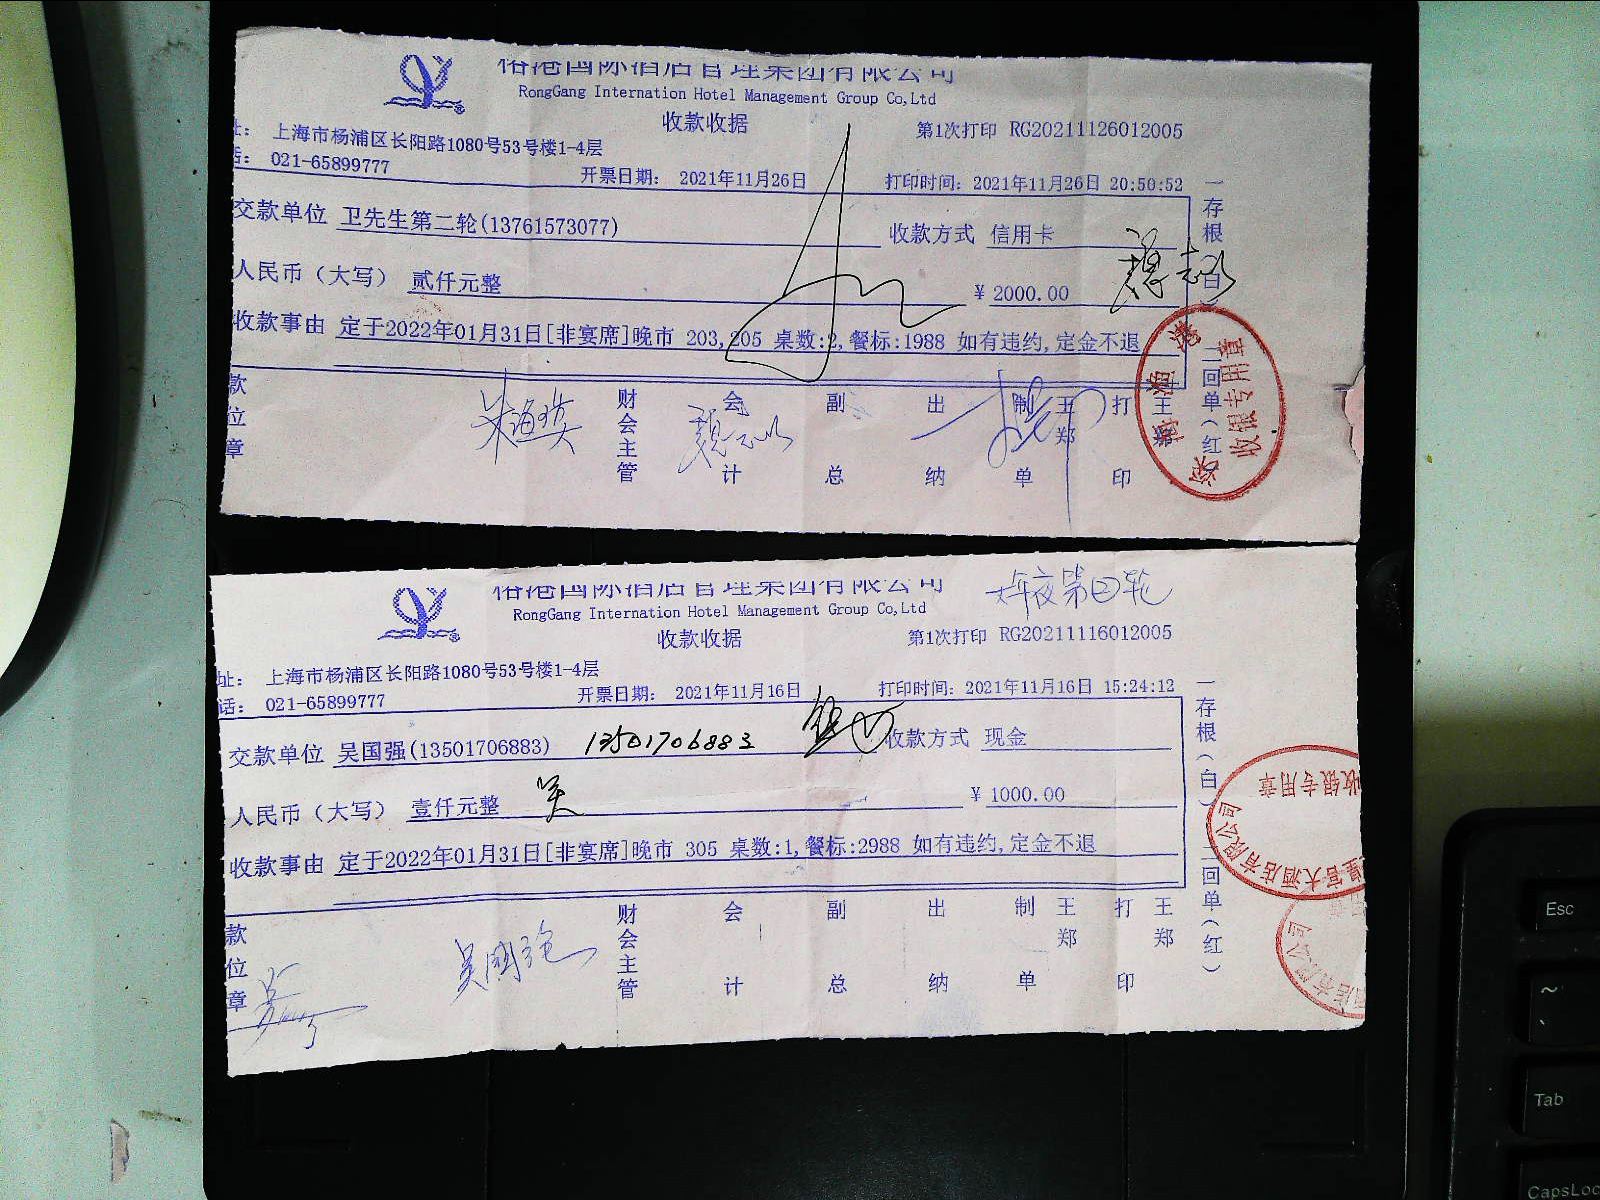 榕港国际酒店管理集团有限公司
RongGang Internation Hotel Management Group Co,Ltd
收款收据
第1次打印 RG20211126012005
址: 上海市杨浦区长阳路1080号53号楼1-4层
话: 021-65899777
开票日期: 2021年11月26日
打印时间: 2021年11月26日 20:50:52
交款单位 卫先生第二轮(13761573077)
收款方式 信用卡
人民币(大写) 贰仟元整
¥ 2000.00
收款事由 定于2022年01月31日[非宴席]晚市 203,205 桌数:2,餐标:1988 如有违约,定金不退
款位章
财会主管
会计
副总
出纳
制单
王郑
打印
王郑
一存根(白)二回单(红)
收银专用章
榕港国际酒店管理集团有限公司
RongGang Internation Hotel Management Group Co,Ltd
年夜第四轮
收款收据
第1次打印 RG20211116012005
址: 上海市杨浦区长阳路1080号53号楼1-4层
话: 021-65899777
开票日期: 2021年11月16日
打印时间: 2021年11月16日 15:24:12
交款单位 吴国强(13501706883) 13501706883
收款方式 现金
人民币(大写) 壹仟元整
吴
¥ 1000.00
收款事由 定于2022年01月31日[非宴席]晚市 305 桌数:1,餐标:2988 如有违约,定金不退
款位章
财会主管
会计
副总
出纳
制单
王郑
打印
王郑
一存根(白)二回单(红)
收银专用章
皇宫大酒店有限公司
酒店有限公司
Esc
~
Tab
CapsLoc